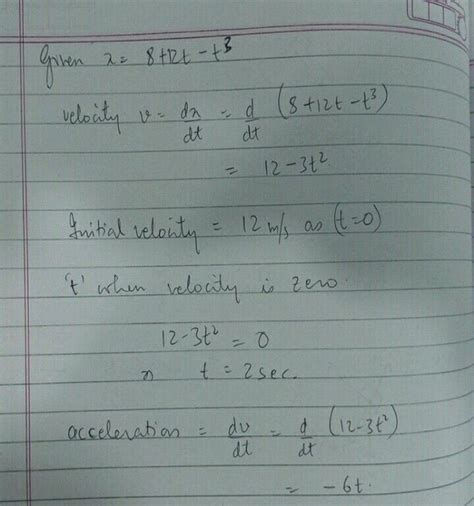 Given x = 8+12t - t³
velocity v = dx/dt = d/dt (8+12t - t³)
= 12 - 3t²
Initial velocity = 12 m/s as (t=0)
't' when velocity is zero.
12-3t² = 0
t = 2 sec.
acceleration = dv/dt = d/dt (12-3t²)
= -6t.